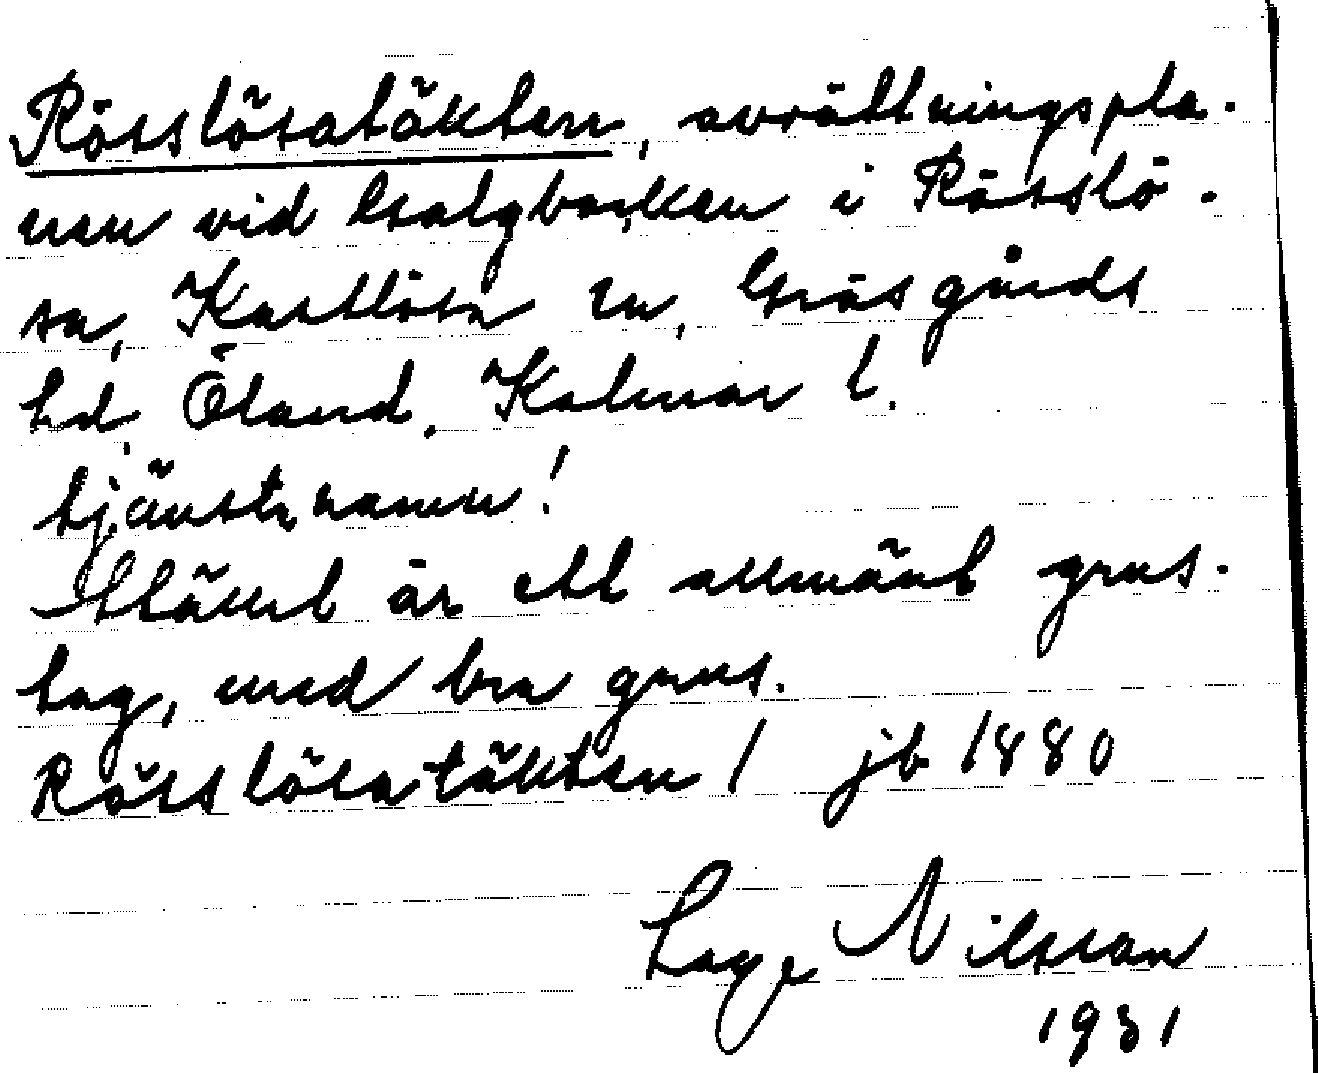 Rösslösatäkten, avrättningspla-
nen vid Galgbacken i Rösslö-
sa, Kastlösa sn, Gräsgårds
hd, Öland, Kalmar l.
tjänstenamn!
Stället är ett allmänt grus-
tag, med bra grus.
Rösslösatäkten / jb 1880
Lage Nilsson
1931